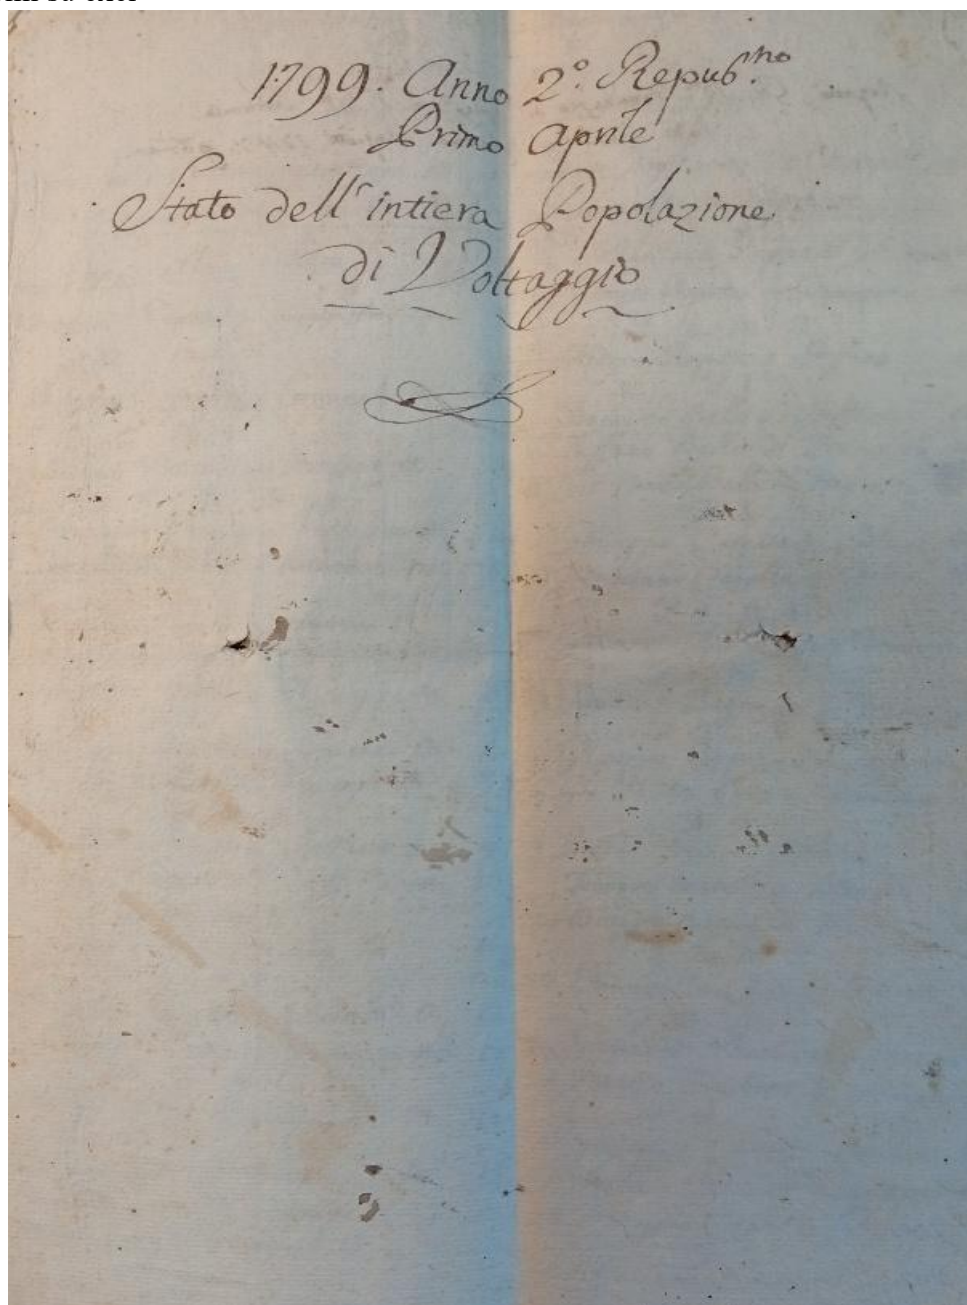 1799. Anno 2º. Repub.no
Primo Aprile
Stato dell'intiera Popolazione
di Voltaggio